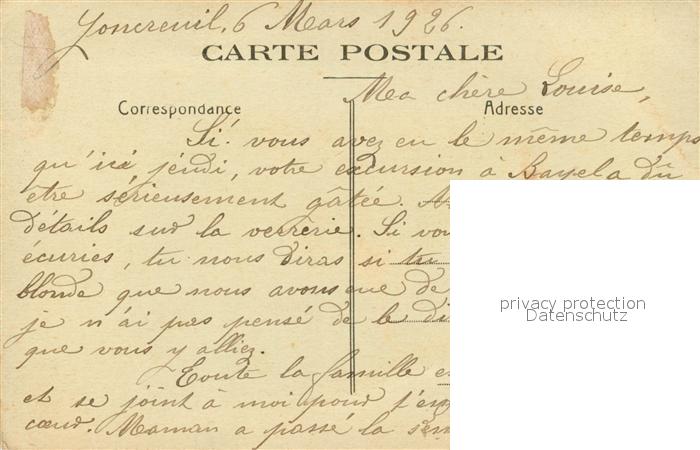 Joncreuil, 6 Mars 1926.
CARTE POSTALE
Ma chère Louise,
Correspondance
Adresse
Si vous avez eu le même temps
qu'ici jeudi, votre excursion à Bayel a dû
être sérieusement gâtée.
détails sur la verrerie. Si vou
écuries, tu nous diras si tu
blonde que nous avons vue de
je n'ai pas pensé de le di
que vous y alliez.
Toute la famille
et se joint à moi pour t'em
cœur. Maman a passé la sem
privacy protection
Datenschutz